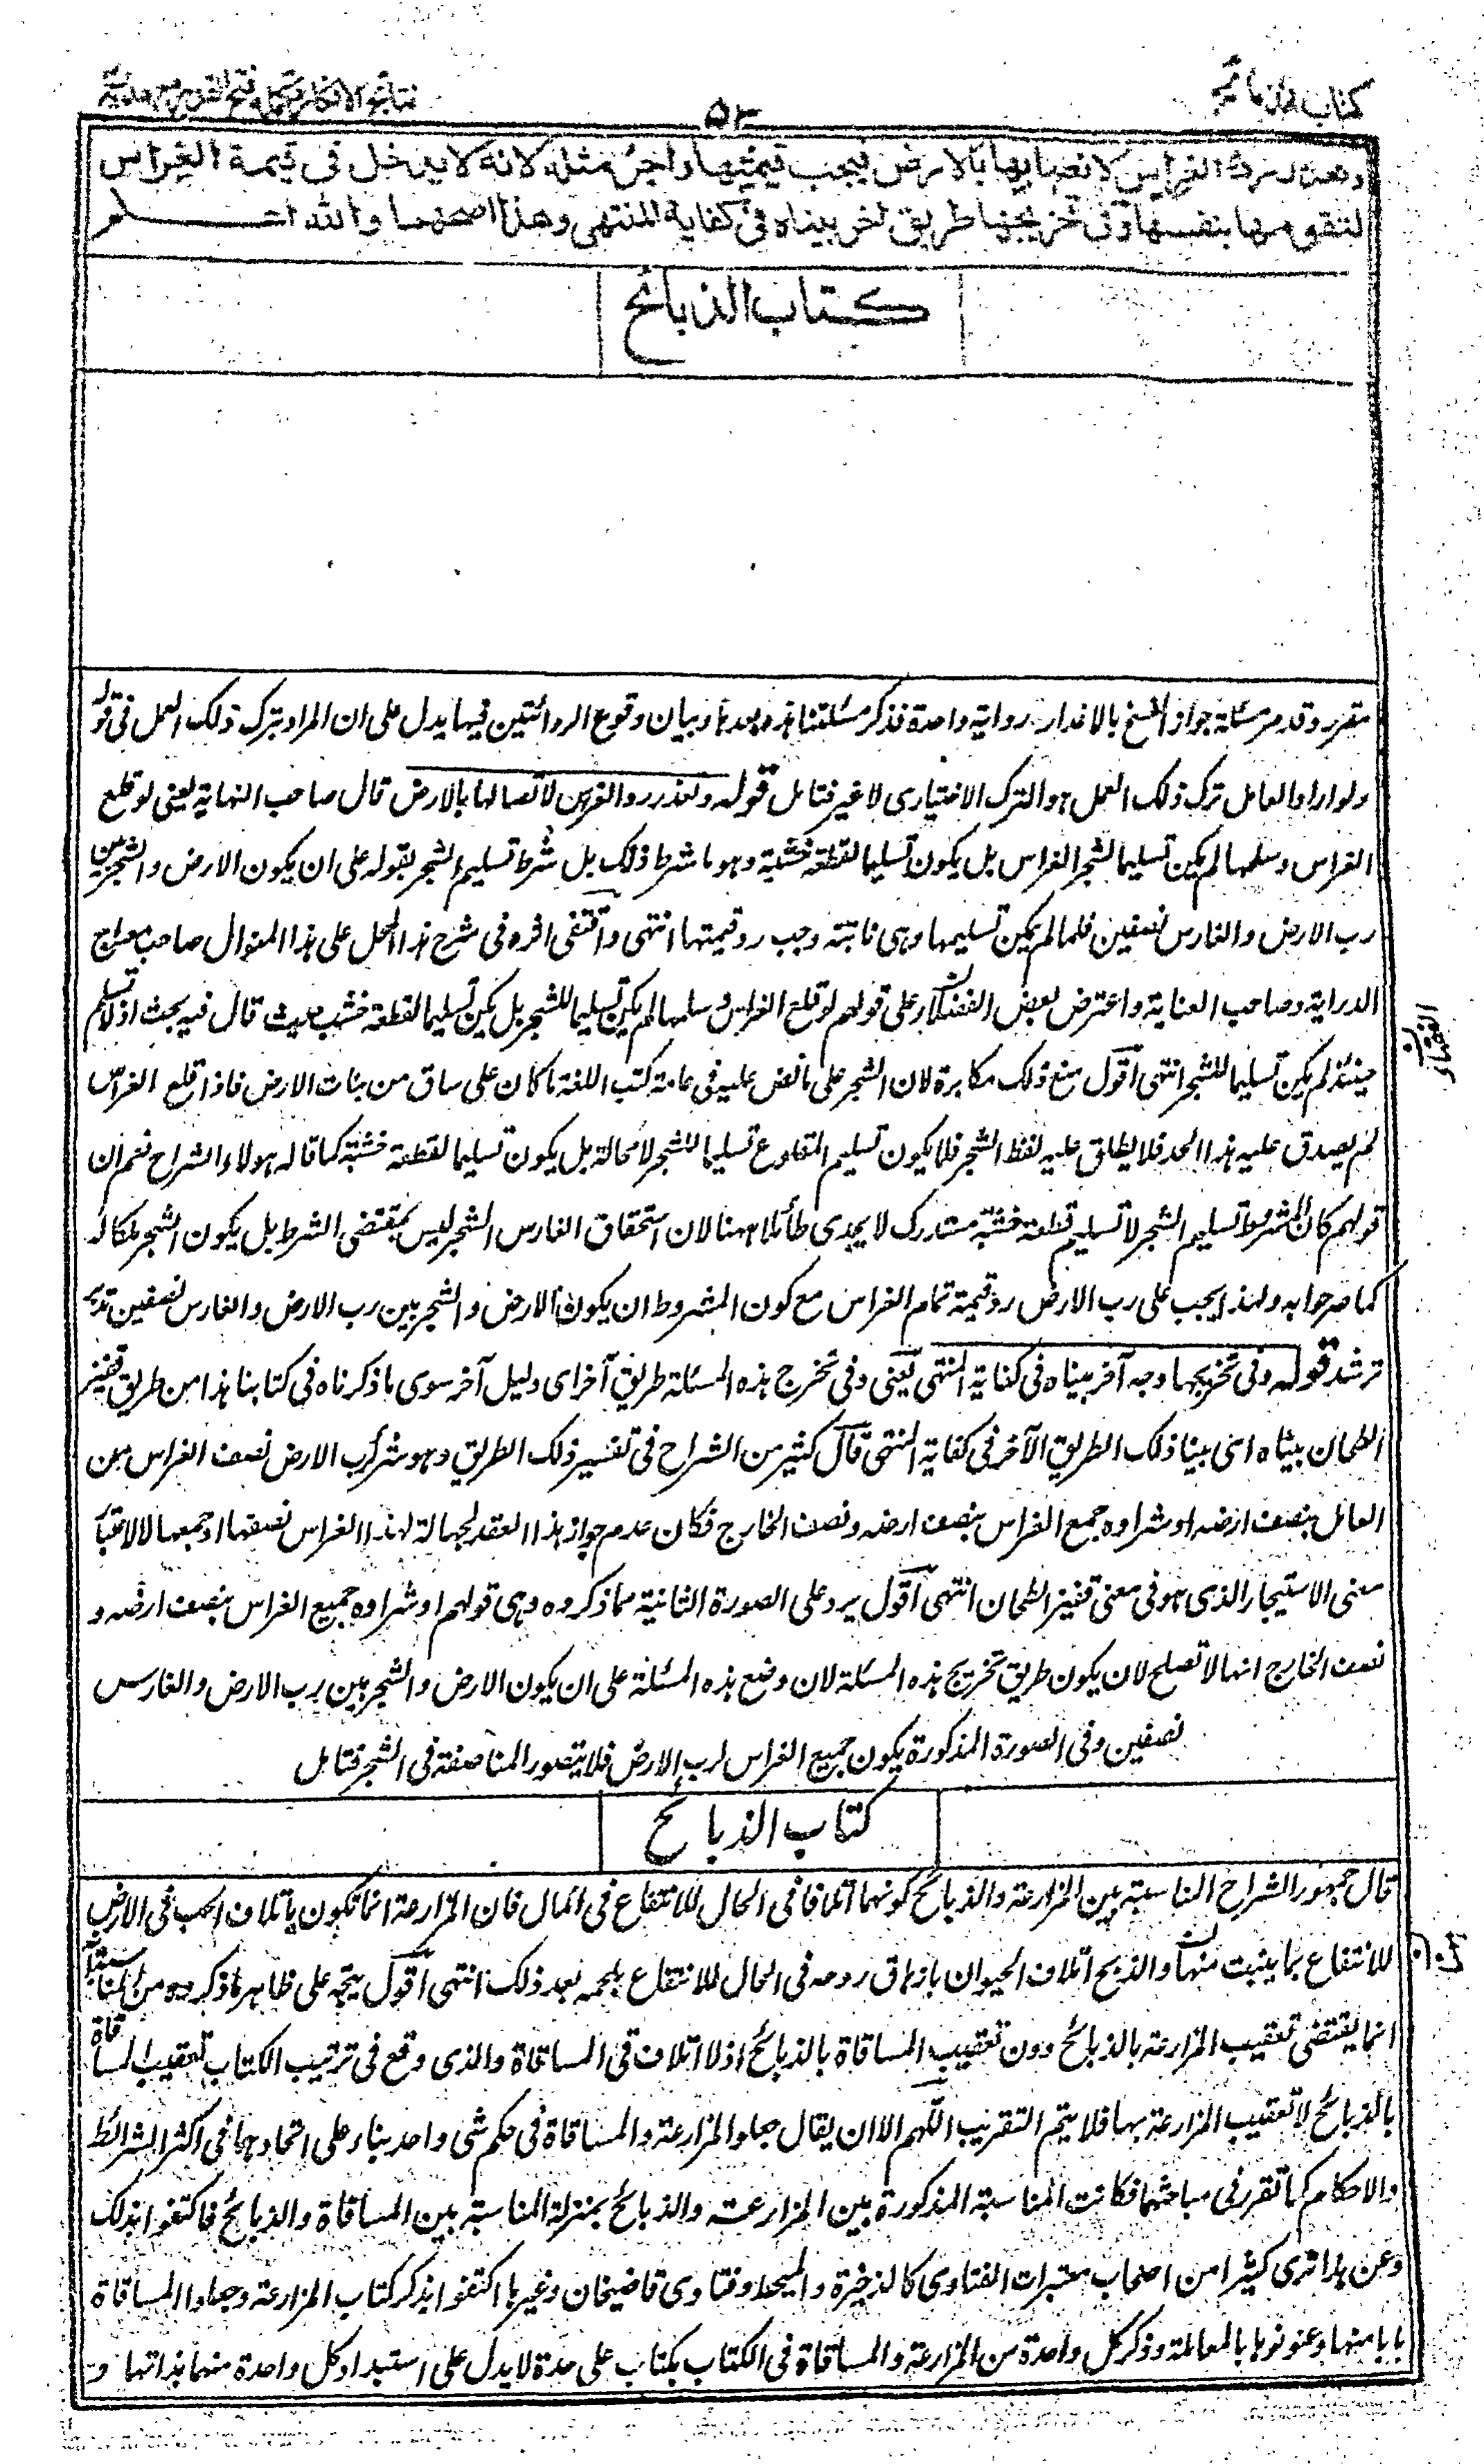 كتاب الذبائح
٥٣
نتائج الافكار تكملة فتح القدير مع هداية
وتعذر رد الغراس لاتصالها بالارض فيجب قيمتها واجر مثله لانه لا يدخل في قيمة الغراس
لتقومها بنفسها وفي تخريجها طريق اخر بيناه في كفاية المنتهى وهذا اصحهما والله اعلم
كتاب الذبائح
مقرر وقد مر مسئلة جواز الفسخ بالاعذار رواية واحدة فذكر مسئلتنا هذه بعدها وبيان وقوع الروايتين فيها يدل على ان المراد بترك ذلك العمل في قوله
ولو اراد العامل ترك ذلك العمل هو الترك الاختياري لا غير فتامل قوله وتعذر رد الغراس لاتصالها بالارض قال صاحب النهاية يعني لو قلع
الغراس وسلمها لم يكن تسليما لشجر الغراس بل يكون تسليما لقطعة خشبة وهو ما شرط ذلك بل شرط تسليم الشجر بقوله على ان يكون الارض والشجر بين
رب الارض والغارس نصفين فلما لم يمكن تسليمها وهي نابتة وجب رد قيمتها انتهى واقتفى اثره في شرح هذا المحل على هذا المنوال صاحب معراج
الدراية وصاحب العناية واعترض بعض الفضلاء على قولهم لو قلع الغراس وسلمها لم يكن تسليما للشجر بل يكون تسليما لقطعة خشب حيث قال فيه بحث اذ لا نسلم
حينئذ لم يكن تسليما للشجر انتهى اقول منع ذلك مكابرة لان الشجر على ما نص عليه في عامة كتب اللغة ما كان على ساق من نبات الارض فاذا قلع الغراس
لم يصدق عليه هذا الحد فلا يطلق عليه لفظ الشجر فلا يكون تسليم المقلوع تسليما للشجر لا محالة بل يكون تسليما لقطعة خشبة كما قاله هولاء الشراح نعم ان
قولهم كان المشروط تسليم الشجر لا تسليم قطعة خشبة مستدرك لا يجدي طائلا ههنا لان استحقاق الغارس الشجر ليس بمقتضى الشرط بل يكون الشجر ملكا له
كما صرحوا به ولهذا يجب على رب الارض رد قيمة تمام الغراس مع كون المشروط ان يكون الارض والشجر بين رب الارض والغارس نصفين تدبر
ترشد قوله وفي تخريجها وجه آخر بيناه في كفاية المنتهى يعني وفي تخرج هذه المسئلة طريق آخر اى دليل آخر سوى ما ذكرناه في كتابنا هذا من طريق قفيز
الطحان بيناه اى بينا ذلك الطريق الآخر في كفاية المنتهى قال كثير من الشراح في تفسير ذلك الطريق وهو شرى رب الارض نصف الغراس من
العامل بنصف ارضه او شراوه جمع الغراس بنصف ارضه ونصف الخارج فكان عدم جواز هذا العقد لجهالة لهذا الغراس نصفها او جميعها لا لاعتبار
معنى الاستيجار الذي هو في معنى قفيز الطحان انتهى اقول يرد على الصورة الثانية مما ذكروه وهي قولهم او شراوه جميع الغراس بنصف ارضه و
نصف الخارج انها لا تصلح لان يكون طريق تخريج هذه المسئلة لان وضع هذه المسئلة على ان يكون الارض والشجر بين رب الارض والغارس
نصفين وفي الصورة المذكورة يكون جميع الغراس لرب الارض فلا يتصور المناصفة في الشجر فتامل
كتاب الذبائح
قال جمهور الشراح المناسبة بين المزارعة والذبائح كونهما اتلافا في الحال للانتفاع في المال فان المزارعة انما تكون باتلاف الحب في الارض
للانتفاع بما ينبت منها والذبح اتلاف الحيوان بازهاق روحه في الحال للانتفاع بلحمه بعد ذلك انتهى اقول يتجه على ظاهر ما ذكروه من المناسبة انه
انما يقتضي تعقيب المزارعة بالذبائح دون تعقيب المساقاة بالذبائح اذ لا اتلاف في المساقاة والذي وقع في ترتيب الكتاب تعقيب المساقاة
بالذبائح لا تعقيب المزارعة بها فلا يتم التقريب اللهم الا ان يقال جعلوا المزارعة والمساقاة في حكم شي واحد بناء على اتحادهما في اكثر الشرائط
والاحكام كما تقرر في مباحثهما فكانت المناسبة المذكورة بين المزارعة والذبائح بمنزلة المناسبة بين المساقاة والذبائح فاكتفوا بذلك
وعن هذا ترى كثيرا من اصحاب معتبرات الفتاوى كالذخيرة والمحيط وفتاوى قاضيخان وغيرها اكتفوا بذكر كتاب المزارعة وجعلوا المساقاة
بابا منها وعنونوها بالمعاملة وذكر كل واحدة من المزارعة والمساقاة في الكتاب بكتاب على حدة لا يدل على استبداد كل واحدة منهما بذاتها و